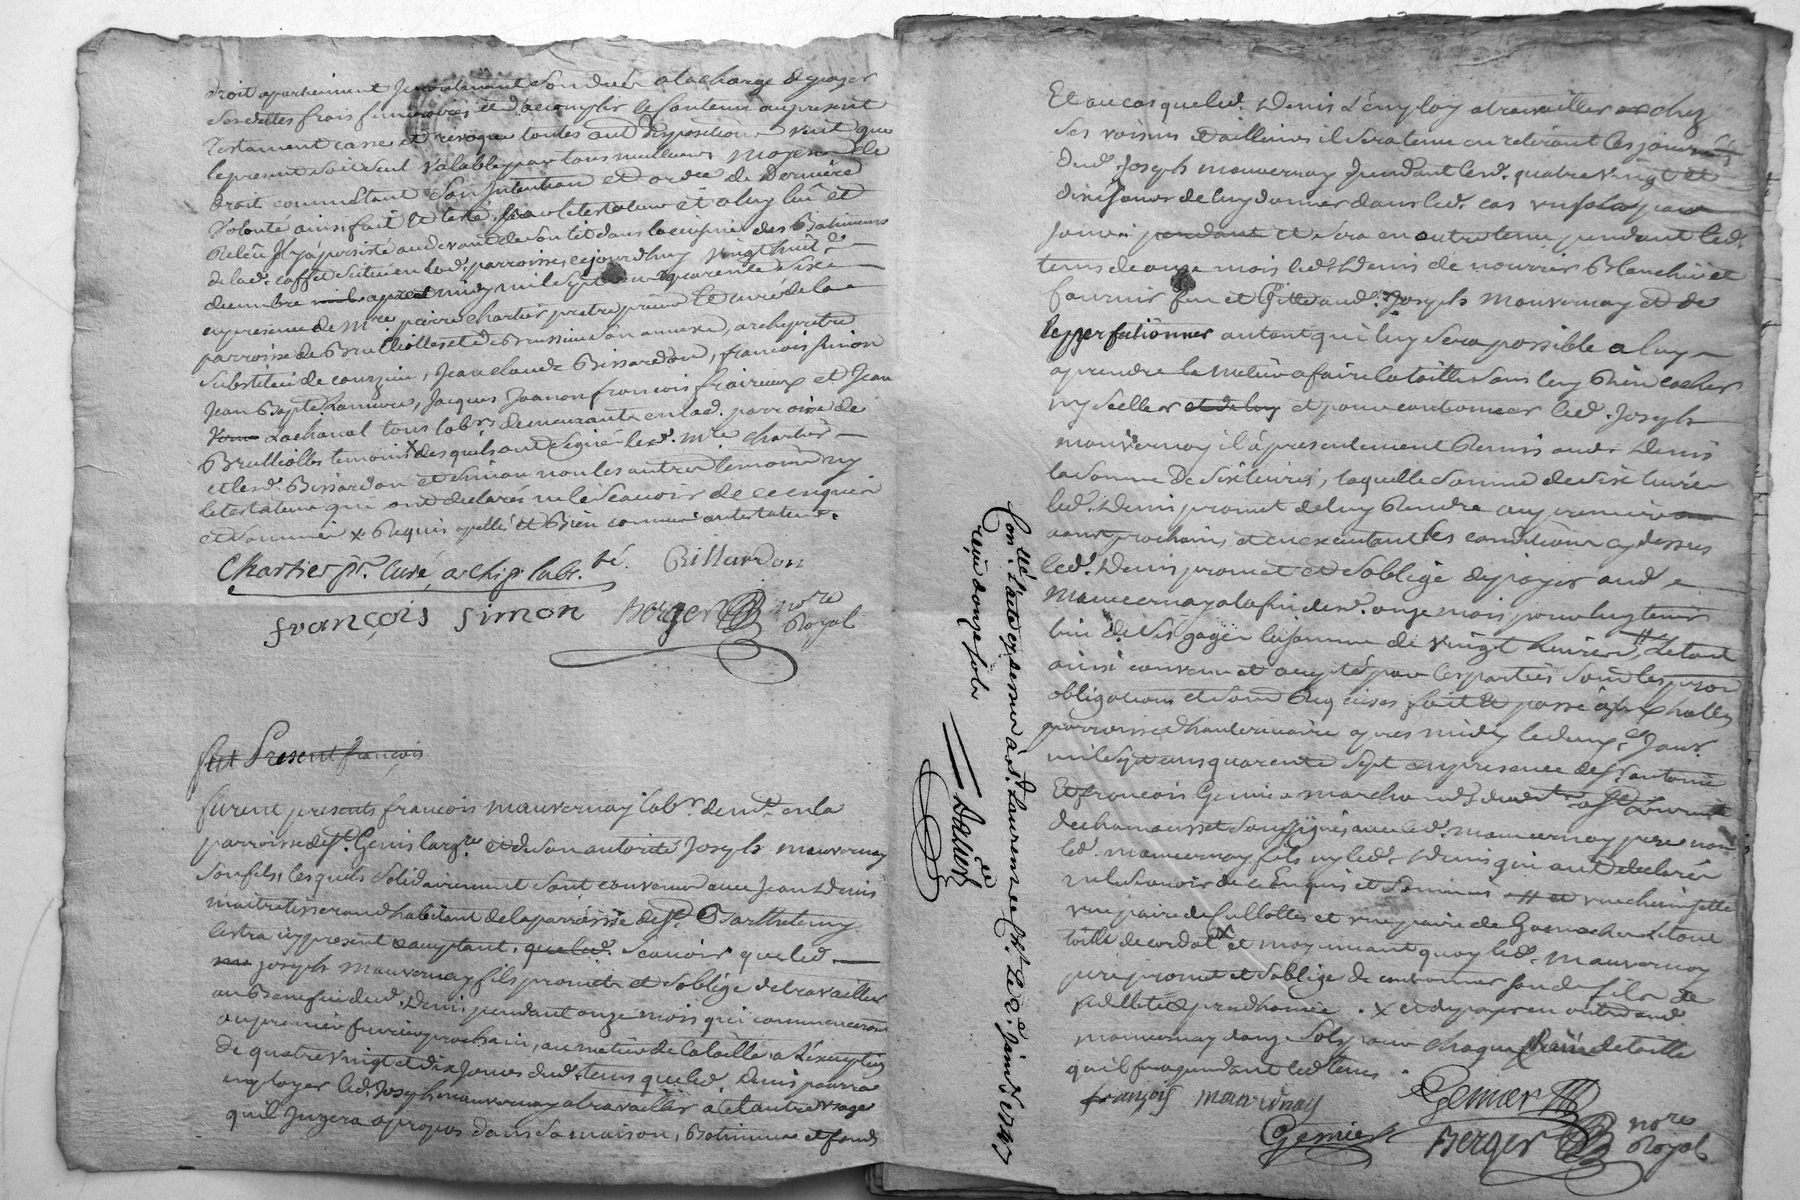 droit apartiennent Incontinant son deces a la charge de payer
sesdittes frais funeraires et d'accomplir le contenu au present
testament casse et revoque toutes autres dispositions veut que
le present soit seul valable par tous meilleurs moyens de
droit consistant son Intention et ordre de derniere
volonté ainsi fait et testé par le testateur et a luy lû et
relû Il y a persisté au devant de son lit dans la cuisine des Batimens
de lad. situé en lad. parroisse, cejourdhuy vingt huit
decembre apres midy mil sept cent quarente Six
en presence de Mre pierre Chartier pretre prieur et curé de la
parroisse de Brullioles et de Brussieu son annexe, archipretre
substitué de courzieu, Jean claude Bissardon, françois simon
Jean Bapte Jacques Joanon francois et Jean
Lachanal tous labrs demeurants en lad. parroisse de
Brullioles temoins desquels ont signé led. Mre Chartier
et led. Bissardon et simon non les autres temoins ny
le testateur qui ont declarés ne le scavoir de ce enquis
et sommé x Requis apellés et Bien connus au testateur.
Chartier pr. Curé, archip. subst. té. Bissardon
françois simon Berger nore
Royal
fut Present françois
furent presents francois mauvernay labr. demt. en la
parroisse de St. Genis largre et de son autorité Joseph mauvernay
son fils, lesquels solidairement sont convenus avec Jean Denis
maitre tisserand habitant de la parroisse de St. Barthelemy
Lestra icy present acceptant, que led. scavoir que led.
joseph mauvernay fils promet et s'oblige de travailler
au Benefice dud. Denis pendant onze mois qui commenceront
au premier fevrier prochain, au metier de la toille, a L'exception
de quatre vingt et dix Jours dud. tems que led. Denis pourra
employer led. Joseph mauvernay a travailler a tel autre usage
qu'il Jugera apropos dans sa maison, Batimens et fonds
Con.lé L'acte cy dessus à St. Laurent ce Le 2e. Janvr. 1747
reçu douze sols
Et au cas que led. Denis L'employ a travailler chez
ses voisins et ailleurs il sera tenu en retirant les journées
dud. Joseph mauvernay pendant lesd. quatre vingt et
dix jours de luy donner dans led. cas un sol par
jour pendant et sera en outre tenu pendant led.
tems de onze mois led. Denis de nourrir Blanchir et
fournir feu et Gitte aud. Joseph Mauvernay et de
le perfectionner autant qu'il luy sera possible a luy
aprendre le metier a faire la toille sans luy Rien cacher
ny celler et de luy et pour cautionner led. Joseph
mauvernay il a presentement Remis aud. Denis
la somme de six livres, laquelle somme de six livres
led. Denis promet de luy Rendre au premier
aoust prochain, et en executant les conditions cy dessus
led. Denis promet et s'oblige de payer aud.
Mauvernay a la fin desd. onze mois pour luy tenir
lieu de ses gages la somme de vingt livres, Letout
ainsi convenu et accepté par les parties sous les
obligations et sous Requises fait et passé a
parroisse d'hauterivoire apres midy le deux Janvr.
mil sept cens quarente sept en presence de Sr. antoine
Et francois Genier marchands demts. a St. Laurent
de chamousset soussignés avec led. mauvernay pere non
led. mauvernay fils ny led. Denis qui ont declarés
ne le scavoir de ce Enquis et sommés et une chemisette
une paire de cullottes et une paire de Gamaches Letout
toille de cordat x et moyennant quoy led. Mauvernay
pere promet et s'oblige de cautionner son d. fils de
fidellité et prudhomie. x et de payer en outre aud.
mauvernay donze Sols pour chaque piece de toille
qu'il fera pendant led. tems.
françois mauvernay Genier
Genier Berger nore
Royal